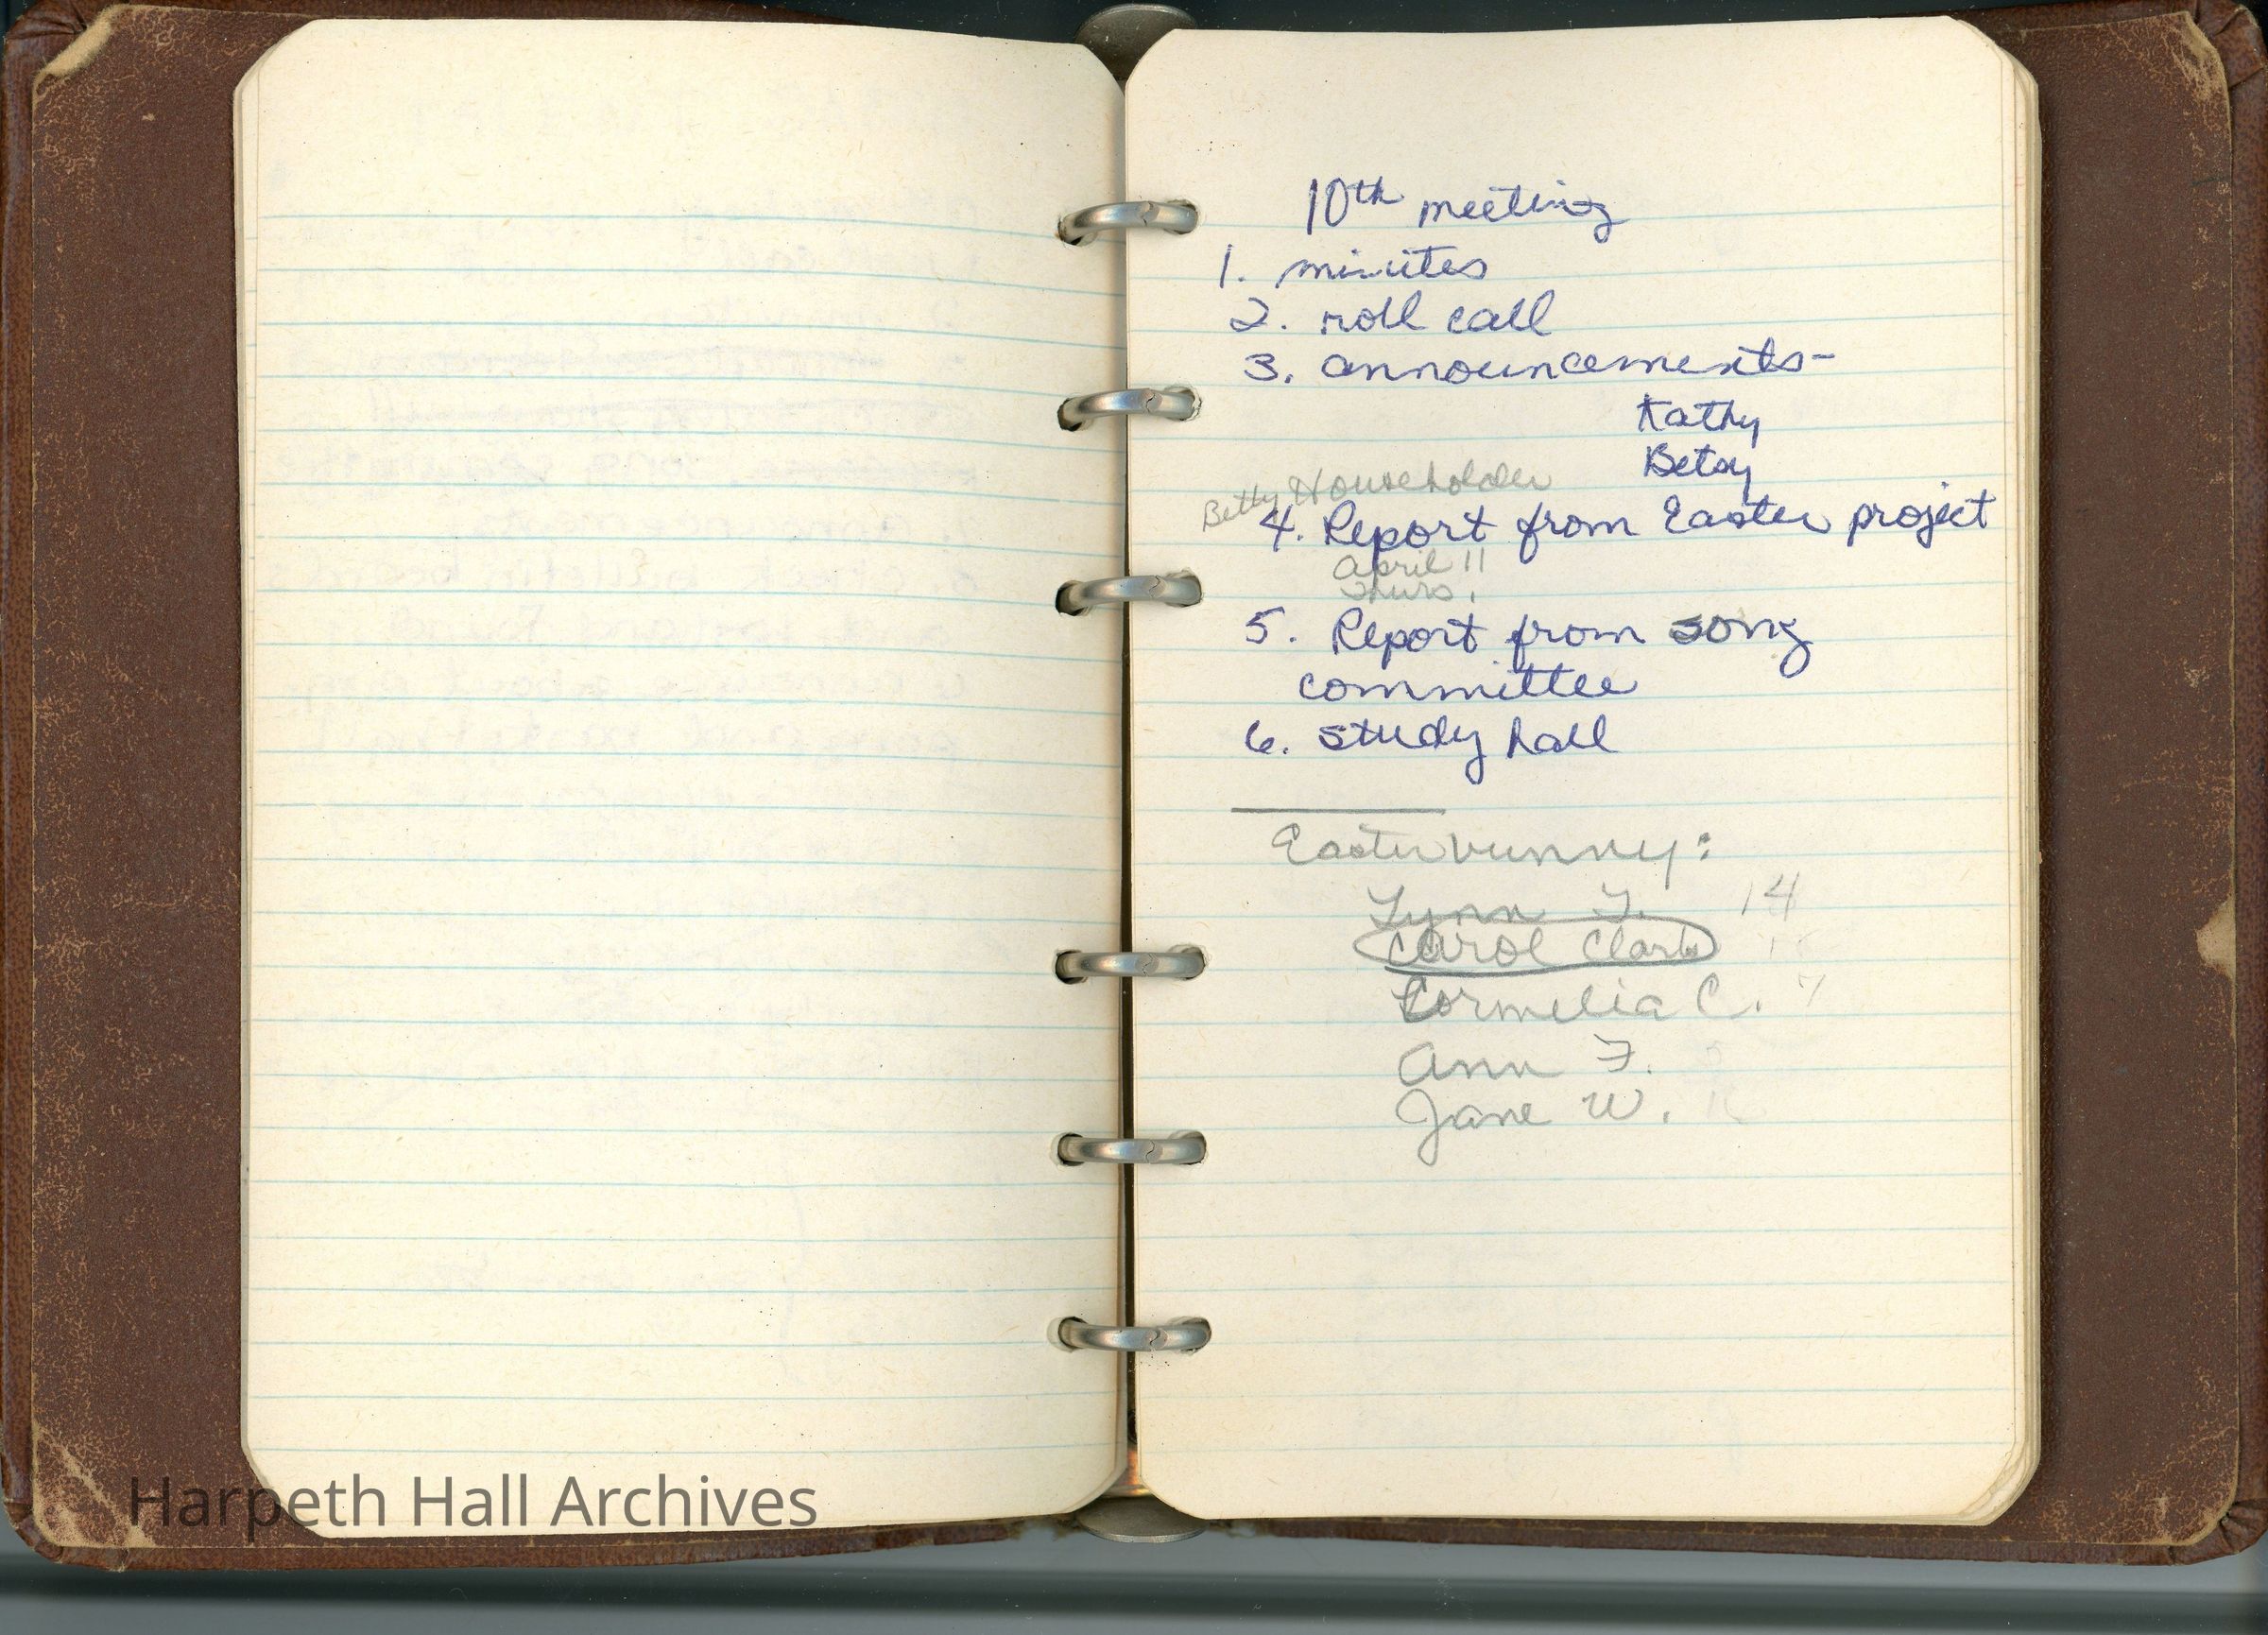 10th meeting
1. minutes
2. roll call
3. announcements-
Kathy
Betsy
Betty Householder
4. Report from Easter project
April 11
Thurs.
5. Report from song
committee
6. study hall
Easter bunny:
Lynn F. 14
Carol Clark
Cornelia C. 7
Ann F.
Jane W.
Harpeth Hall Archives